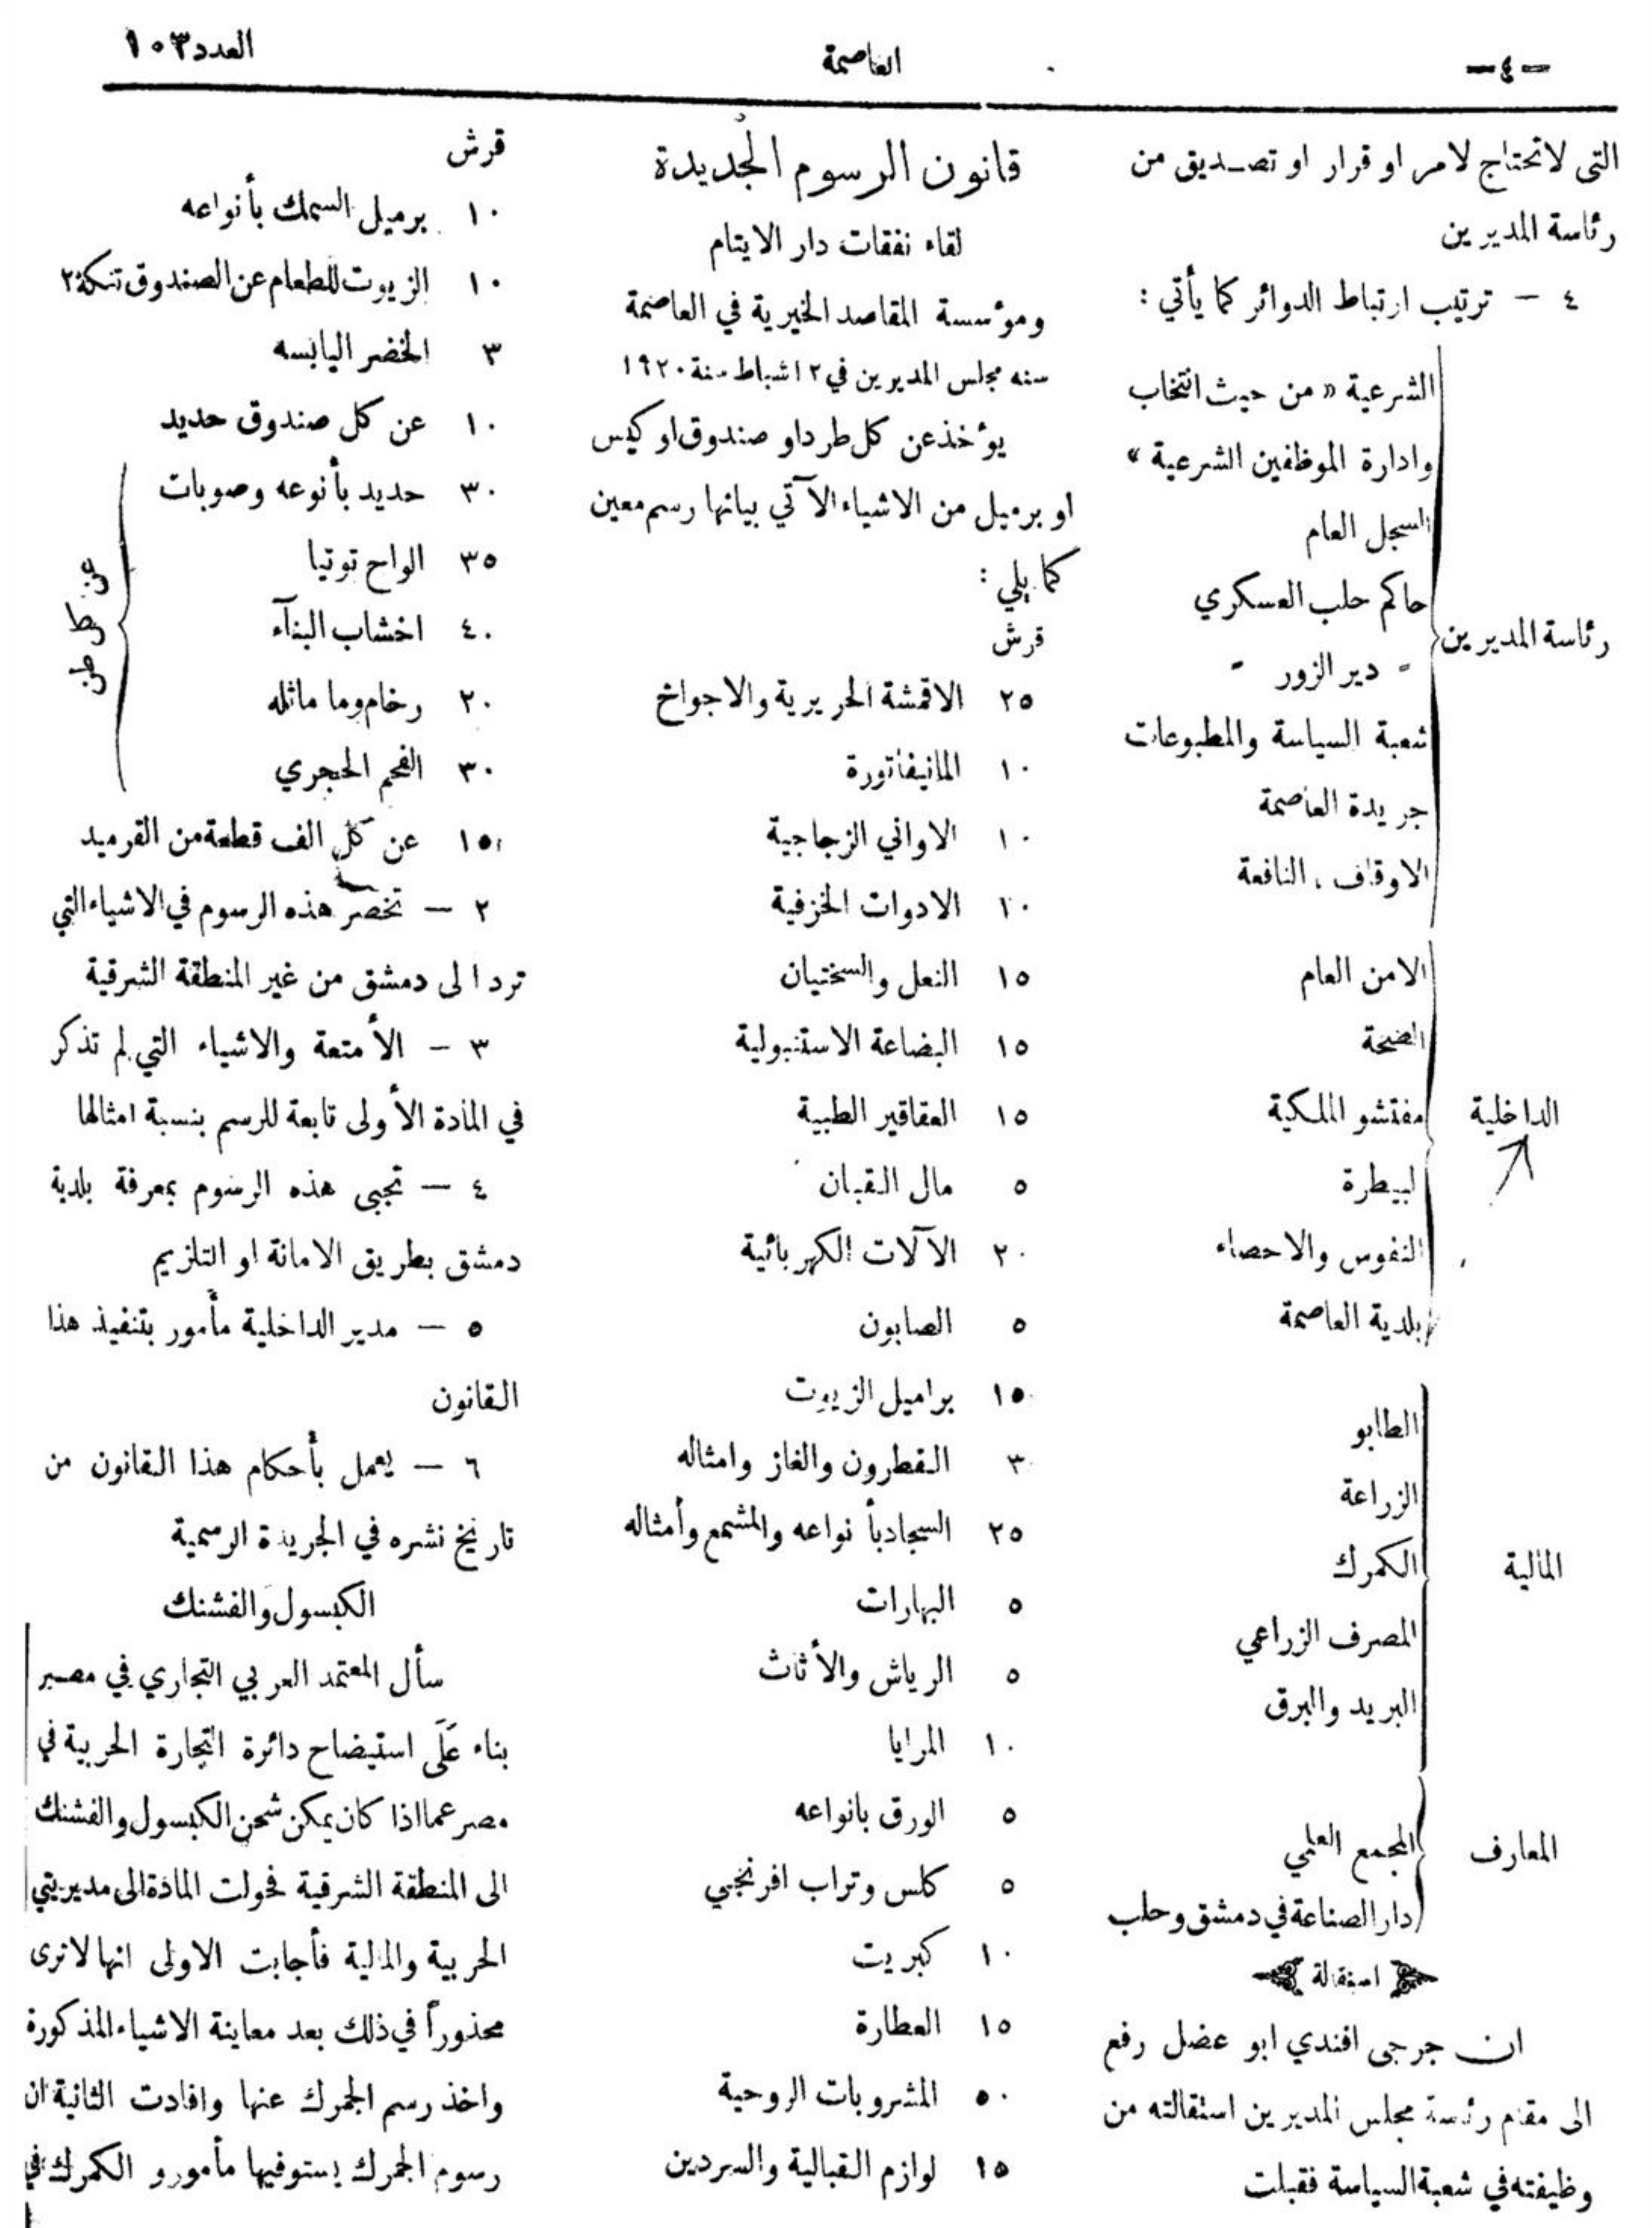 -٤-
العاصمة
العدد ١٠٣
التي لاتحتاج لامر او قرار او تصديق من
رئاسة المديرين
٤ – ترتيب ارتباط الدوائر كما يأتي :
رئاسة المديرين
الشرعية « من حيث انتخاب
وادارة الموظفين الشرعية »
السجل العام
حاكم حلب العسكري
- دير الزور -
شعبة السياسة والمطبوعات
جريدة العاصمة
الاوقاف ، النافعة
الداخلية
الامن العام
الصحة
مفتشو الملكية
البيطرة
النفوس والاحصاء
بلدية العاصمة
المالية
الطابو
الزراعة
الكمرك
المصرف الزراعي
البريد والبرق
المعارف
المجمع العلمي
دار الصناعة في دمشق وحلب
استقالة
ان جرجى افندي ابو عضل رفع
الى مقام رئاسة مجلس المديرين استقالته من
وظيفته في شعبة السياسة فقبلت
قانون الرسوم الجديدة
لقاء نفقات دار الايتام
ومؤسسة المقاصد الخيرية في العاصمة
سنه مجلس المديرين في ١٢ شباط سنة ١٩٢٠
يؤخذ عن كل طرد او صندوق او كيس
او برميل من الاشياء الآتي بيانها رسم معين
كما يلي :
قرش
٢٥ الاقمشة الحريرية والاجواخ
١٠ المانيفاتورة
١٠ الاواني الزجاجية
١٠ الادوات الخزفية
١٥ النعل والسختيان
١٥ البضاعة الاستنبولية
١٥ العقاقير الطبية
٥ مال القبان
٢٠ الآلات الكهربائية
٥ الصابون
١٥ براميل الزيوت
٣ القطرون والغاز وامثاله
٢٥ السجاد بأنواعه والمشمع وأمثاله
٥ البهارات
٥ الرياش والأثاث
١٠ المرايا
٥ الورق بانواعه
٥ كلس وتراب افرنجي
١٠ كبريت
١٥ العطارة
٥٠ المشروبات الروحية
١٥ لوازم القبالية والسردين
قرش
١٠ برميل السمك بأنواعه
١٠ الزيوت للطعام عن الصندوق تنكة ٢
٣ الخضر اليابسه
١٠ عن كل صندوق حديد
٣٠ حديد بأنوعه وصوبات
٣٥ الواح توتيا
٤٠ اخشاب البنآء
٢٠ رخام وما ماثله
٣٠ الفحم الحجري
عن كل طن
١٥ عن كل الف قطعة من القرميد
٢ – تخصر هذه الرسوم في الاشياء التي
ترد الى دمشق من غير المنطقة الشرقية
٣ – الأمتعة والاشياء التي لم تذكر
في المادة الأولى تابعة للرسم بنسبة امثالها
٤ – تجبى هذه الرسوم بمعرفة بلدية
دمشق بطريق الامانة او التلزيم
٥ – مدير الداخلية مأمور بتنفيذ هذا
القانون
٦ – يعمل بأحكام هذا القانون من
تاريخ نشره في الجريدة الرسمية
الكبسول والفشنك
سأل المعتمد العربي التجاري في مصر
بناء عَلَى استيضاح دائرة التجارة الحربية في
مصر عما اذا كان يمكن شحن الكبسول والفشنك
الى المنطقة الشرقية فحولت المادة الى مديريتي
الحربية والمالية فأجابت الاولى انها لا ترى
محذوراً في ذلك بعد معاينة الاشياء المذكورة
واخذ رسم الجمرك عنها وافادت الثانية ان
رسوم الجمرك يستوفيها مأمورو الكمرك في